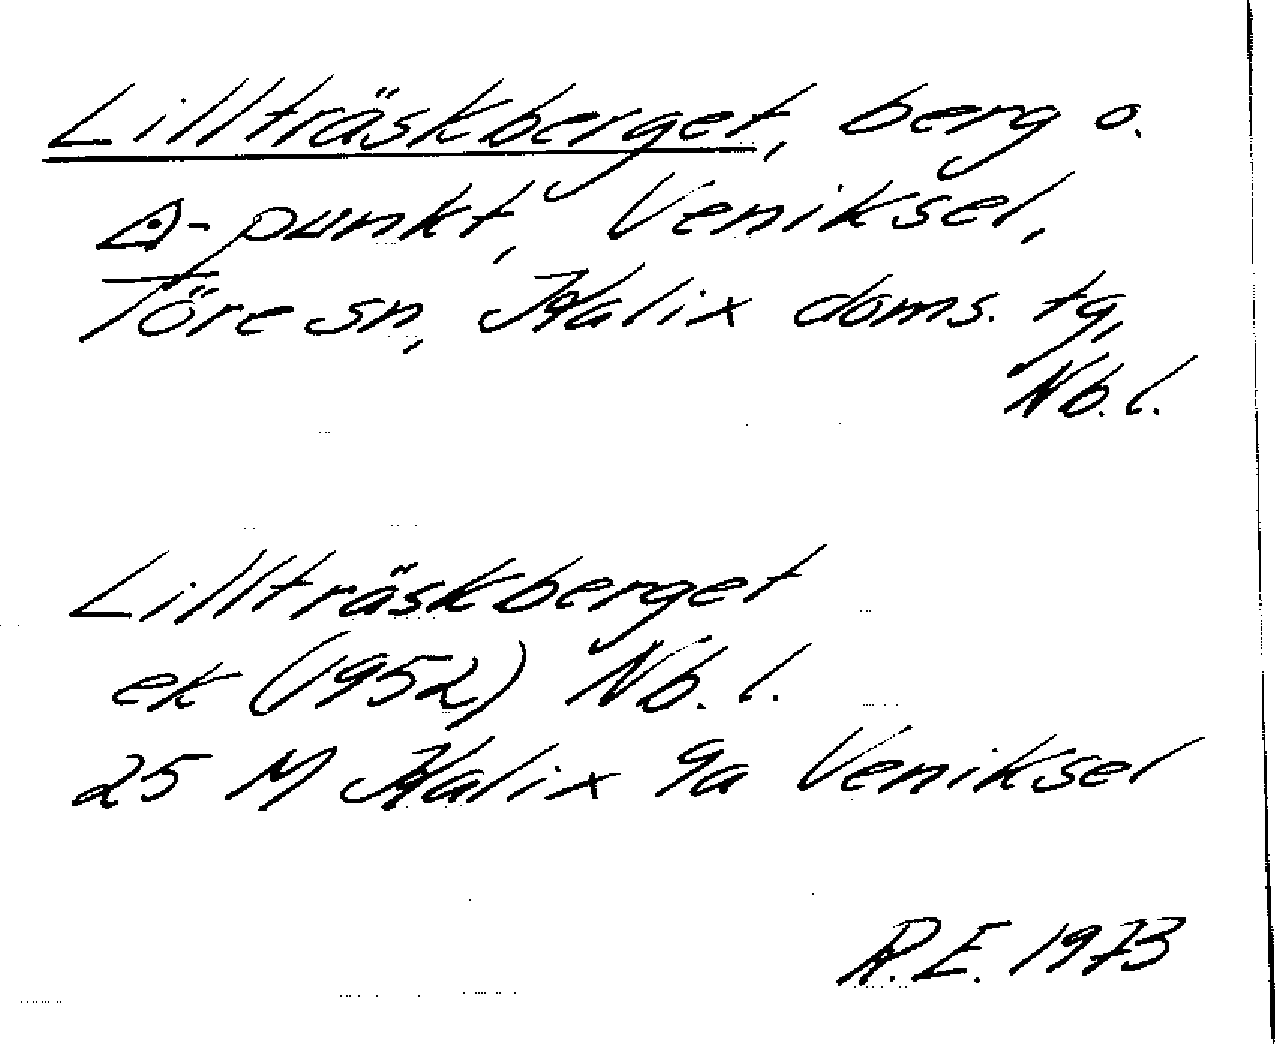 Lillträskberget, berg o.
△-punkt, Veniksel,
Töre sn, Kalix doms. tg,
Nb. l.
Lillträskberget
ek (1952) Nb. l.
25 M Kalix 9a Veniksel
R.E. 1973